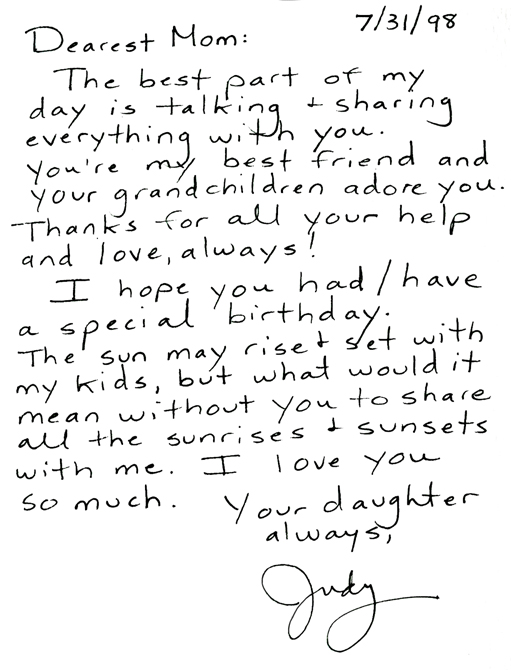 7/31/98
Dearest Mom:
The best part of my
day is talking + sharing
everything with you.
You're my best friend and
your grandchildren adore you.
Thanks for all your help
and love, always!
I hope you had/have
a special birthday.
The sun may rise + set with
my kids, but what would it
mean without you to share
all the sunrises + sunsets
with me. I love you
so much. Your daughter
always,
Judy